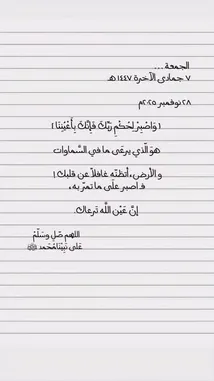 الجمعة ...
٧ جمادى الآخرة ١٤٤٧ هـ
٢٨ نوفمبر ٢٠٢٥م
| وَاصْبِرْ لِحُكْمِ رَبِّكَ فَإِنَّكَ بِأَعْيُنِنَا |
هوَ الّذي يرعَى ما في السَّماوات
و الأرض، أتظنّه غافلاً عن قلبك !
فـ اصبر على ما تمرّ به،
إنَّ عَيْن اللَّه تَرعاك.
اللهم صَلِّ وسَلِّمْ
عَلى نَبِيِّنَا مُحَمد ﷺ